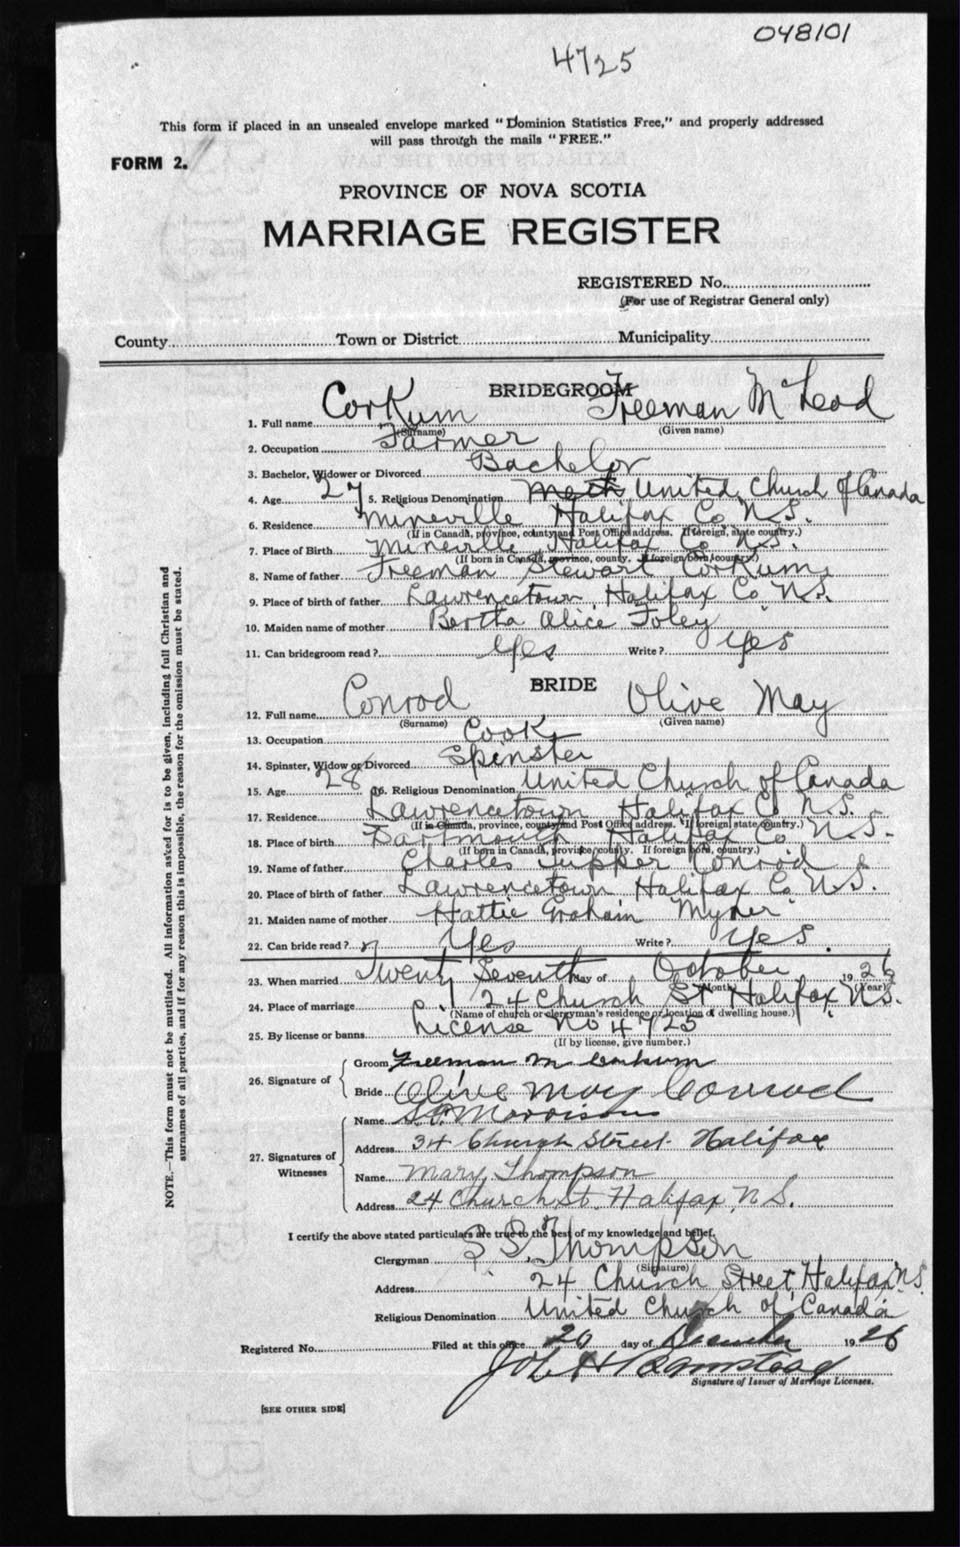 048101
4725
This form if placed in an unsealed envelope marked "Dominion Statistics Free," and properly addressed
will pass through the mails "FREE."
FORM 2.
PROVINCE OF NOVA SCOTIA
MARRIAGE REGISTER
REGISTERED No.
(For use of Registrar General only)
County Town or District Municipality
BRIDEGROOM
1. Full name Corkum Freeman McLeod
(Surname) (Given name)
2. Occupation Farmer
3. Bachelor, Widower or Divorced Bachelor
4. Age 27 5. Religious Denomination Meth United Church of Canada
6. Residence Mineville Halifax Co N.S.
(If in Canada, province, county and Post Office address. If foreign, state country.)
7. Place of Birth Mineville Halifax Co N.S.
(If born in Canada, province, county. If foreign born, country.)
8. Name of father Freeman Stewart Corkum
9. Place of birth of father Lawrencetown Halifax Co N.S.
10. Maiden name of mother Bertha Alice Foley
11. Can bridegroom read? Yes Write? Yes
BRIDE
12. Full name Conrod Olive May
(Surname) (Given name)
13. Occupation Cook
14. Spinster, Widow or Divorced Spinster
15. Age 28 16. Religious Denomination United Church of Canada
17. Residence Lawrencetown Halifax Co N.S.
(If in Canada, province, county and Post Office address. If foreign state country.)
18. Place of birth Dartmouth Halifax Co N.S.
(If born in Canada, province, county. If foreign born, country.)
19. Name of father Charles Tupper Conrod
20. Place of birth of father Lawrencetown Halifax Co N.S.
21. Maiden name of mother Hattie Graham Myner
22. Can bride read? Yes Write? Yes
23. When married Twenty Seventh day of October 1926
(Month) (Year)
24. Place of marriage 24 Church St Halifax N.S.
(Name of church or clergyman's residence or location of dwelling house.)
25. By license or banns License No 4725
(If by license, give number.)
26. Signature of
Groom Freeman M Corkum
Bride Olive May Conrod
27. Signatures of Witnesses
Name Morrison
Address 34 Church Street Halifax
Name Mary Thompson
Address 24 Church St. Halifax, N.S.
I certify the above stated particulars are true to the best of my knowledge and belief.
Clergyman Thompson
(Signature)
Address 24 Church Street, Halifax N.S.
Religious Denomination United Church of Canada
Registered No. Filed at this office 20 day of December 1926
Signature of Issuer of Marriage Licenses.
[SEE OTHER SIDE]
NOTE.—This form must not be mutilated. All information asked for is to be given, including full Christian and
surnames of all parties, and if for any reason this is impossible, the reason for the omission must be stated.